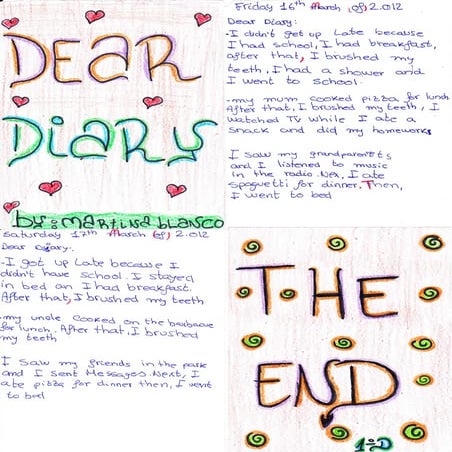 DEAR
DIARY
by: martina blanco
Friday 16th March (of) 2.012
Dear Diary:
-I didn't get up Late because
I had school, I had breakfast,
after that, I brushed my
teeth, I had a shower and
I went to school.
-my mum cooked pizza for lunch
After that, I brushed my teeth, I
watched TV while I ate a
snack and did my homeworks
I saw my grandparents
and I listened to music
in the radio. I ate
spaguetti for dinner. Then,
I went to bed
Saturday 17th March (of) 2.012
Dear Diary:
-I got up Late because I
didn't have school. I stayed
in bed an I had breakfast.
After that, I brushed my teeth
-my uncle cooked on the barbacue
for lunch. After that, I brushed
my teeth
I saw my friends in the park
and I sent messages. Next, I
ate pizza for dinner then, I went
to bed
THE
END
1ºD